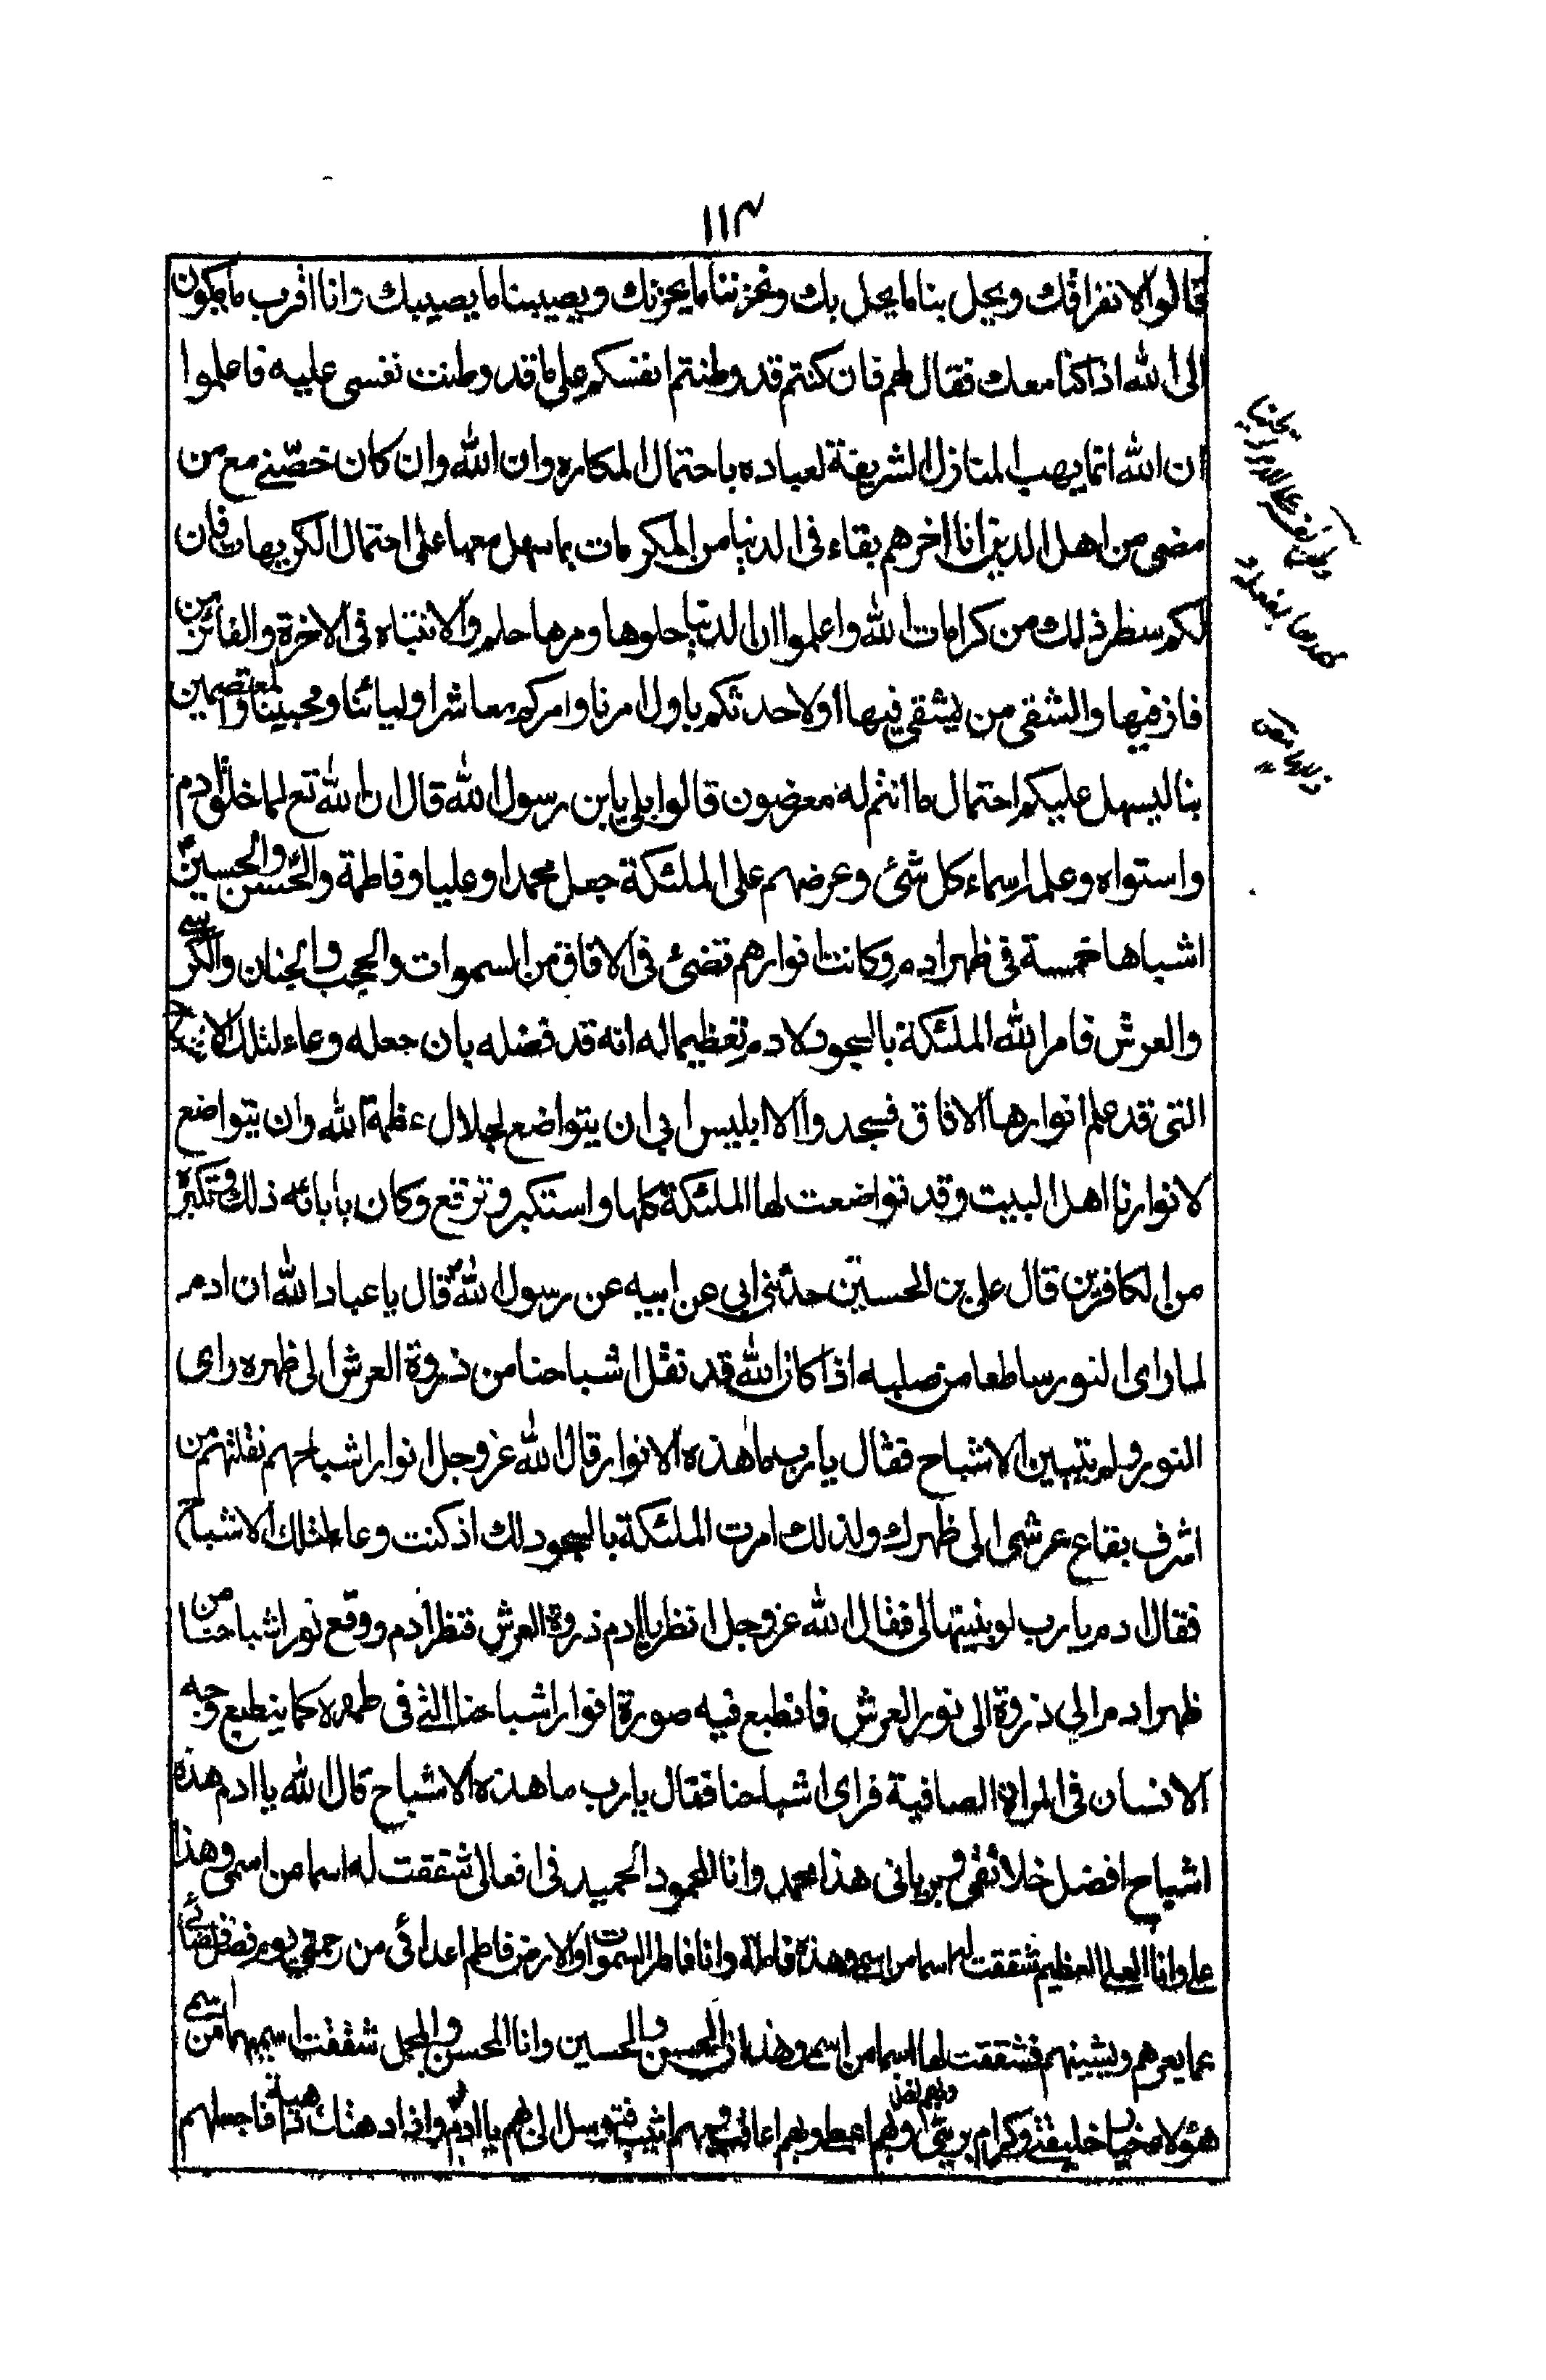 ١١٣
قالوا لا نفارقك ويحل بنا ما يحل بك ويحزننا ما يحزنك ويصيبنا ما يصيبك وانا اقرب ما يكون
الى الله اذا كنا معك فقال لهم فان كنتم قد وطنتم انفسكم على ما قد وطنت نفسى عليه فاعلموا
ان الله انما يهب المنازل الشريفة لعباده باحتمال المكاره وان الله وان كان خصّنى مع من
مضى من اهل الذين انا اخرهم بقاء فى الدنيا من المكرمات بما سهل معها على احتمال الكريهات فان
لكم سطر ذلك من كرامات الله واعلموا ان الدنيا حلوها ومرها حلم والانتباه فى الاخرة والفائز من
فاز فيها والشقى من يشقى فيها اولا حدثكم باول امرنا وامركم معاشر اوليائنا ومحبينا والمعتصمين
بنا ليسهل عليكم احتمال ما انتم له معرضون قالوا بلى يابن رسول الله قال ان الله تع لما خلق ادم
واستواه وعلمه اسماء كل شئ وعرضهم على الملئكة جعل محمدا وعليا وفاطمة والحسن والحسينؑ
اشباها خمسة فى ظهر ادم وكانت انوارهم تضئ فى الافاق من السموات والحجب والجنان والكرسى
والعرش فامر الله الملئكة بالسجود لادم تعظيما له انه قد فضله بان جعله وعاء لتلك الاشباح
التى قد عم انوارها الافاق فسجدوا الا ابليس ابى ان يتواضع لجلال عظمة الله وان يتواضع
لانوارنا اهل البيت وقد تواضعت لها الملئكة كلها واستكبر وترفع وكان بابائه ذلك وتكبره
من الكافرين قال على بن الحسين حدثنى ابى عن ابيه عن رسول اللهؐ قال يا عباد الله ان ادم
لما راى النور ساطعا من صلبه اذا كان الله قد نقل اشباحنا من ذروة العرش الى ظهره راى
النور ولم يتبين الاشباح فقال يا رب ما هذه الانوار قال الله عز وجل انوار اشباحهم نقلتهم من
اشرف بقاع عرشى الى ظهرك ولذلك امرت الملئكة بالسجود لك اذ كنت وعاء لتلك الاشباح
فقال ادم يا رب لو بينتها لى فقال الله عز وجل انظر يا ادم ذروة العرش فنظر ادم ووقع نور اشباحنا من
ظهر ادم الى ذروة الى نور العرش فانطبع فيه صورة انوار اشباحنا التى فى ظهره كما ينطبع وجه
الانسان فى المراة الصافية فراى اشباحنا فقال يا رب ما هذه الاشباح قال الله يا ادم هذه
اشباح افضل خلائقى وبرياتى هذا محمد وانا المحمود الحميد فى افعالى شققت له اسما من اسمى وهذا
على وانا العلى العظيم شققت له اسما من اسمى وهذه فاطمة وانا فاطر السموات والارض فاطم اعدائى من رحمتى يوم فصل قضائى
عما يعرهم ويشينهم فشققت لها اسما من اسمى وهذان الحسن والحسين وانا المحسن والمجمل شققت اسميهما من اسمى
هؤلاء خيار خليقتى وكرام بريتى وبهم اعطى وبهم اعاقب وبهم اثيب فتوسل الى بهم يا ادم واذا دهتك داهية فاجعلهم